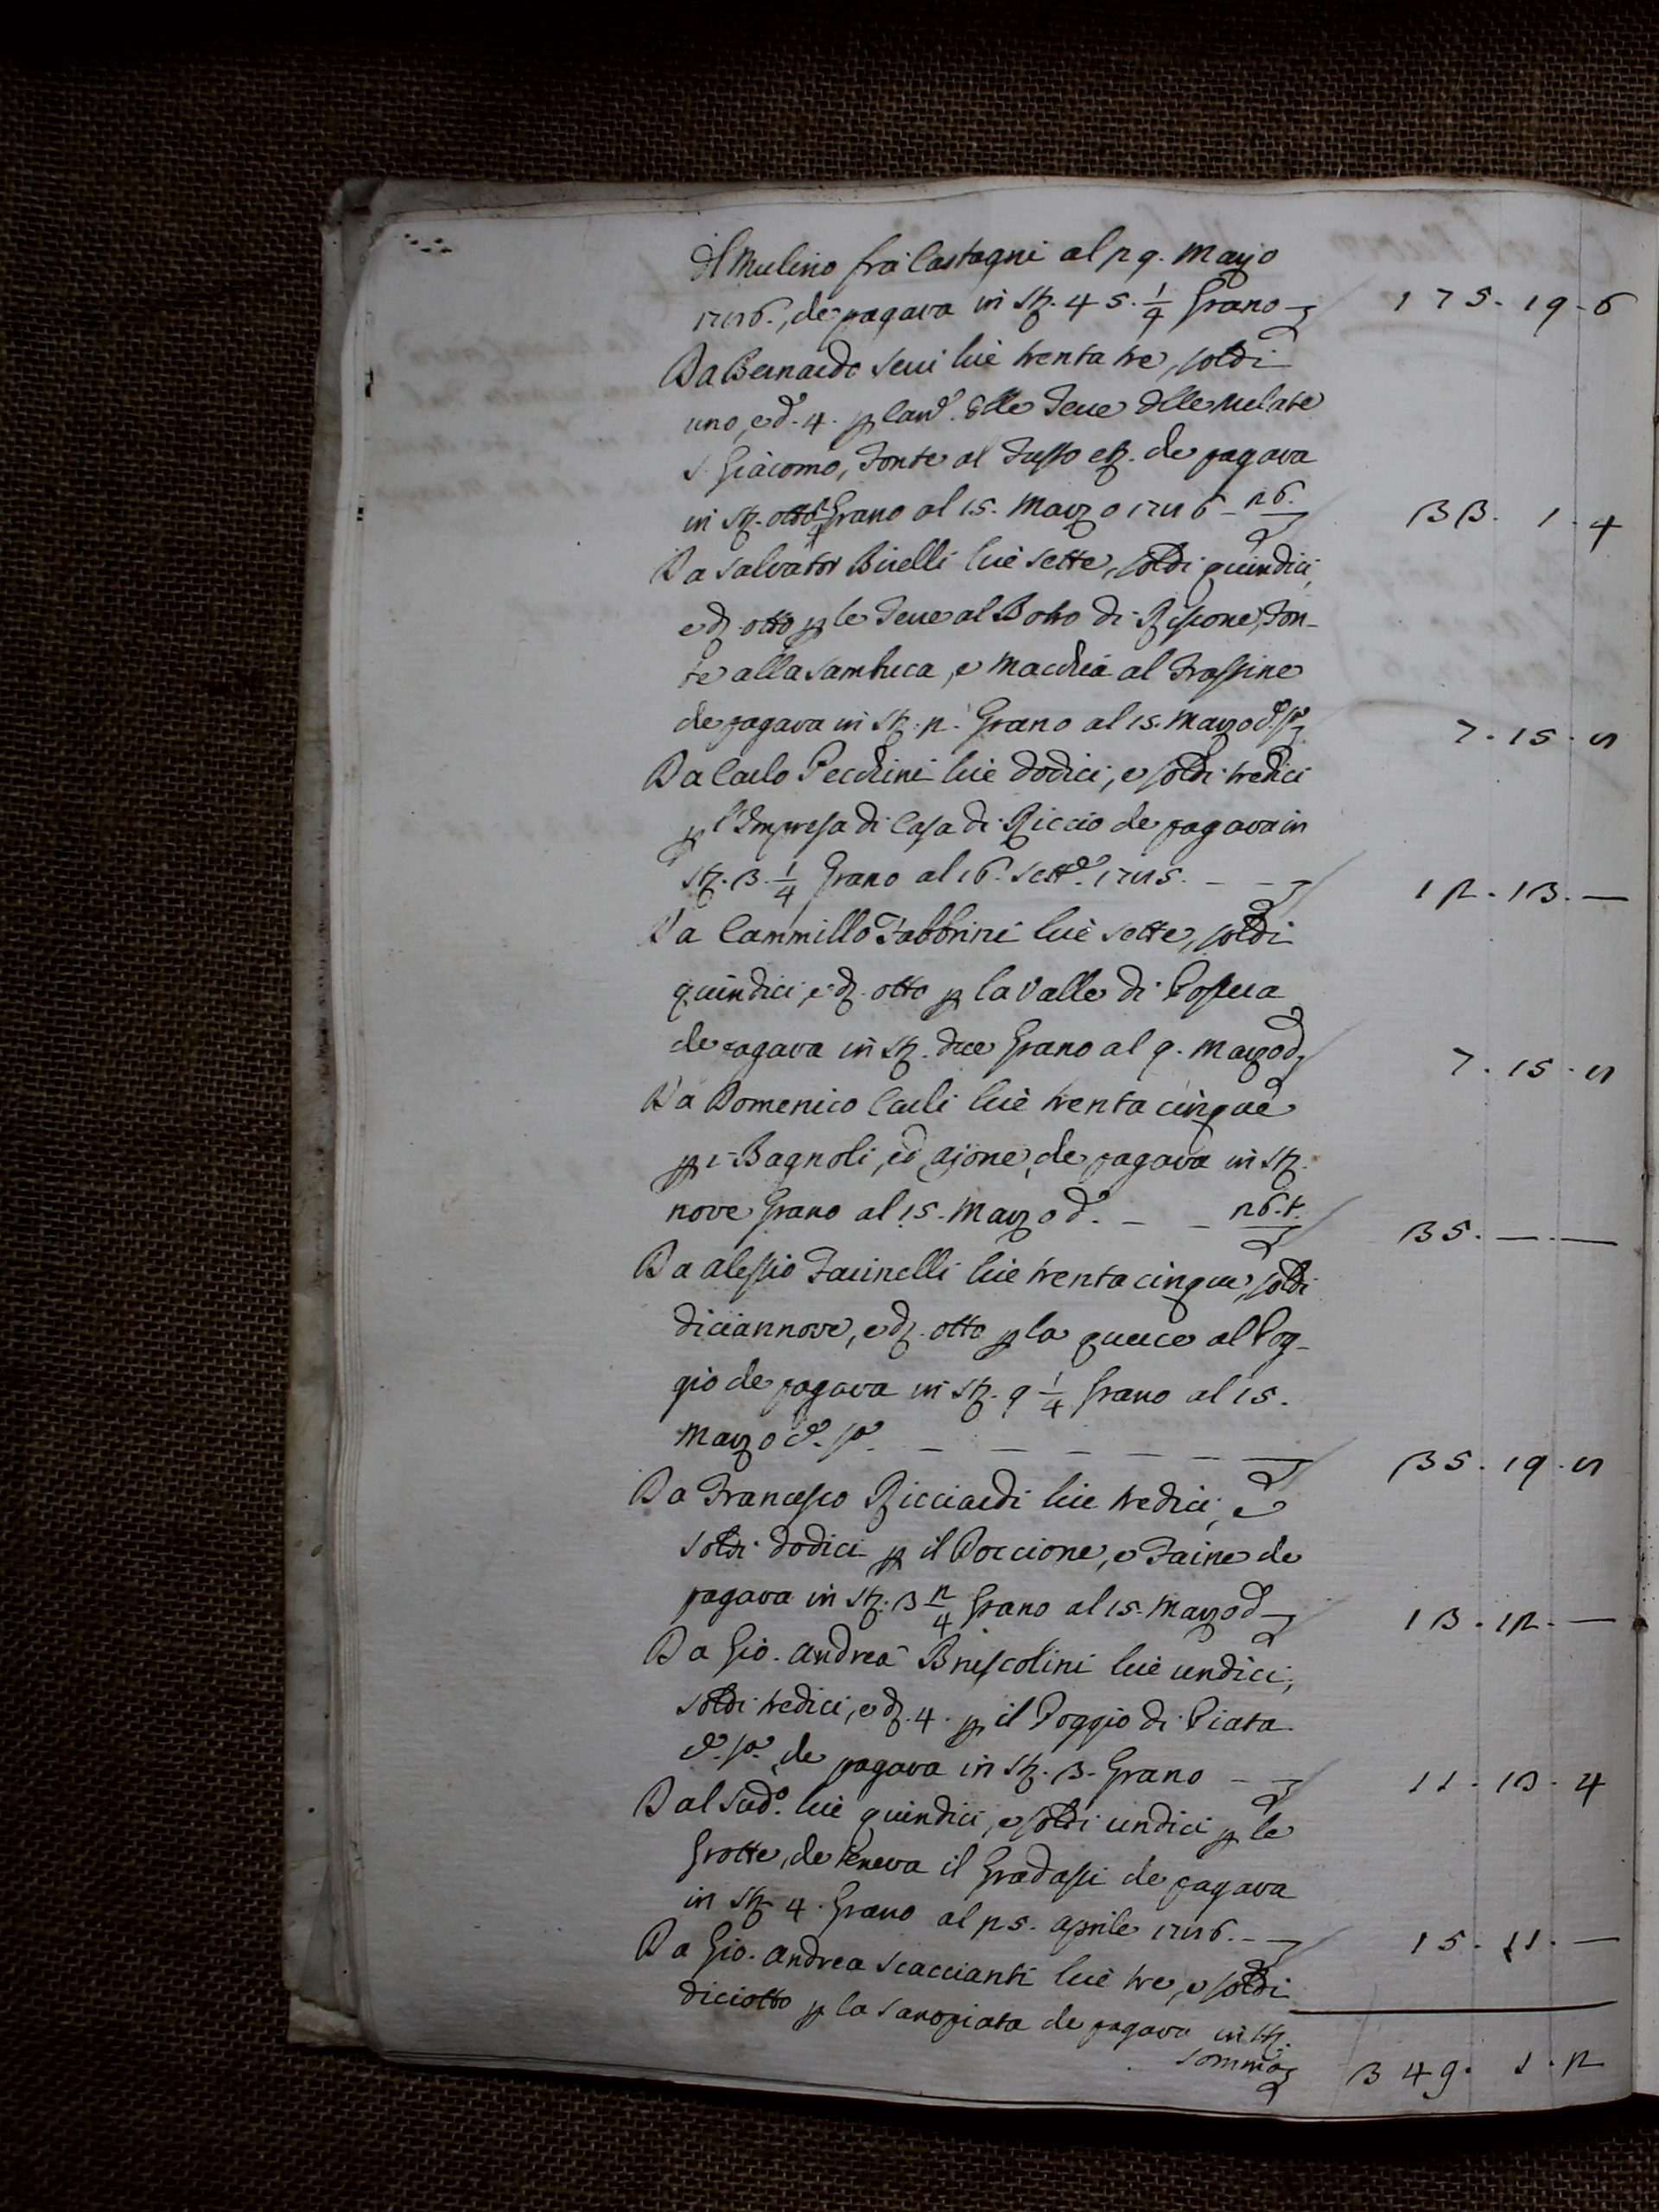 il Mulino frà Castagni al 29. Marzo
1786., che pagava in St. 45. 1/4 Grano 175. 19. 6
Da Bernardo Serri lire trenta tre, soldi
uno, e d. 4. p land. delle Terre delle Melate
S. Giacomo, Fonte al Tufo etc. che pagava
in St. otto Grano al 15. Marzo 1786 - 26. 33. 1. 4
Da Salvator Birelli lire sette, soldi quindici,
e d. otto p le Terre al Botro di Riscone, Fon-
te alla Sambuca, e Macchia al Frassine
che pagava in St. 2. Grano al 15. Marzo d.o s.o 7. 15. 8
Da Carlo Pecchini lire dodici, e soldi tredici
p l'Impresa di Casa di Riccio che pagava in
St. 3. 1/4 Grano al 16. Sett.e 1785. - - 12. 13. —
Da Cammillo Fabbrini lire sette, soldi
quindici, e d. otto p la Valle di
che pagava in St. due Grano al 9. Marzo d. 7. 15. 8
Da Domenico Carli lire trenta cinque
p i Bagnoli, ed ajone, che pagava in St.
nove Grano al 15. Marzo d.o - - 26. t. 35. — —
Da Alessio Farinelli lire trenta cinque, soldi
diciannove, e d. otto p la querce al Pog-
gio che pagava in St. 9 1/4 Grano al 15.
Marzo d.o s.o - - - - - 35. 19. 8
Da Francesco Ricciardi lire tredici, e
soldi dodici p il Doccione, e Faine che
pagava in St. 3 2/4 Grano al 15. Marzo d. 13. 12. —
Da Gio. Andrea Bruscolini lire undici,
soldi tredici, e d. 4. p il Poggio di Piata
d.o s.o che pagava in St. 3. Grano - - 11. 13. 4
Dal Sud.o lire quindici, e soldi undici p le
Grotte, che teneva il Gradassi che pagava
in St. 4. Grano al 25. Aprile 1786. - - 15. 11. —
Da Gio. Andrea Scaccianti lire tre, e soldi
diciotto p la Sanopiata che pagava in St.
Somma 349. 1. 2